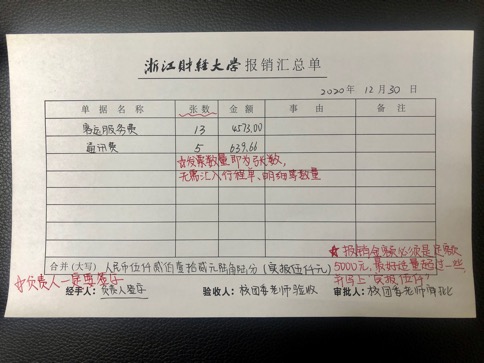 浙江财经大学报销汇总单
2020年 12月30日
单据名称 张数 金额 事由 备注
客运服务费 13 4573.00
通讯费 5 639.66
☆发票数量即为张数,
无需汇入行程单、明细等数量
★报销金额必须是足额
5000元,最好适量超过一些,
并写上"实报伍仟"
合并(大写) 人民币伍仟贰佰壹拾贰元陆角陆分(实报伍仟元)
☆负责人一定要签字
经手人:负责人签字 验收人:校团委老师验收 审批人:校团委老师审批